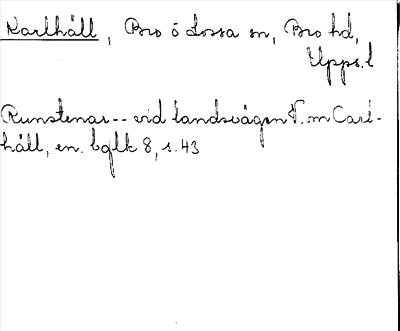 Karlhäll, Bro o Lossa sn, Bro hd,
Upps. l
Runstenar -- vid landsvägen N. m Carl-
häll, en. bglk 8, s. 43